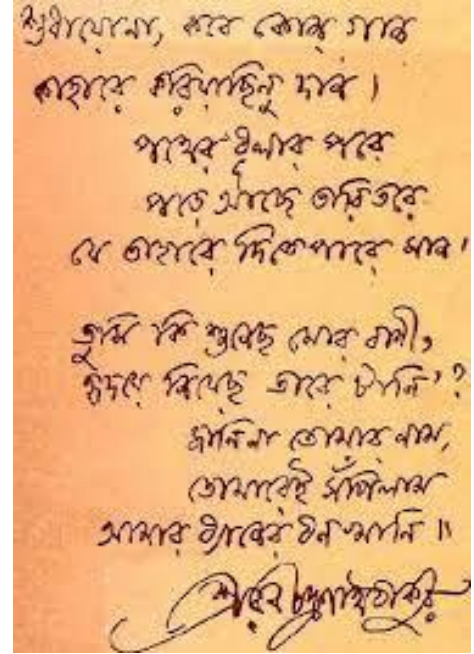 শুধায়োনা, কবে কোন্ গান
কাহারে করিয়াছিনু দান।
পথের ধূলার পরে
পড়ে আছে তারি তরে
যে তাহারে দিতে পারে মান।
তুমি কি শুনেছ মোর বাণী,
হৃদয়ে নিয়েছ তারে টানি'?
জানিনা তোমার নাম,
তোমারেই সঁপিলাম
আমার ধ্যানের ধনখানি॥
শ্রীরবীন্দ্রনাথ ঠাকুর